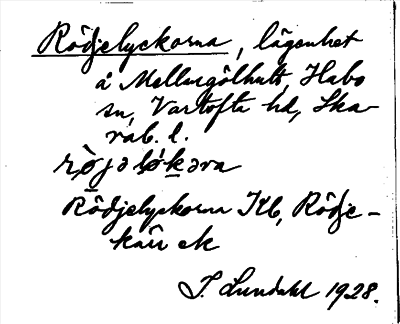 Rödjelyckorna, lägenhet
å Mellurgölhult, Habo
sn, Vartofta hd, Ska-
rab. l.
Rödjelyckorna Kb, Rödje-
ek
J. Lundahl 1928.